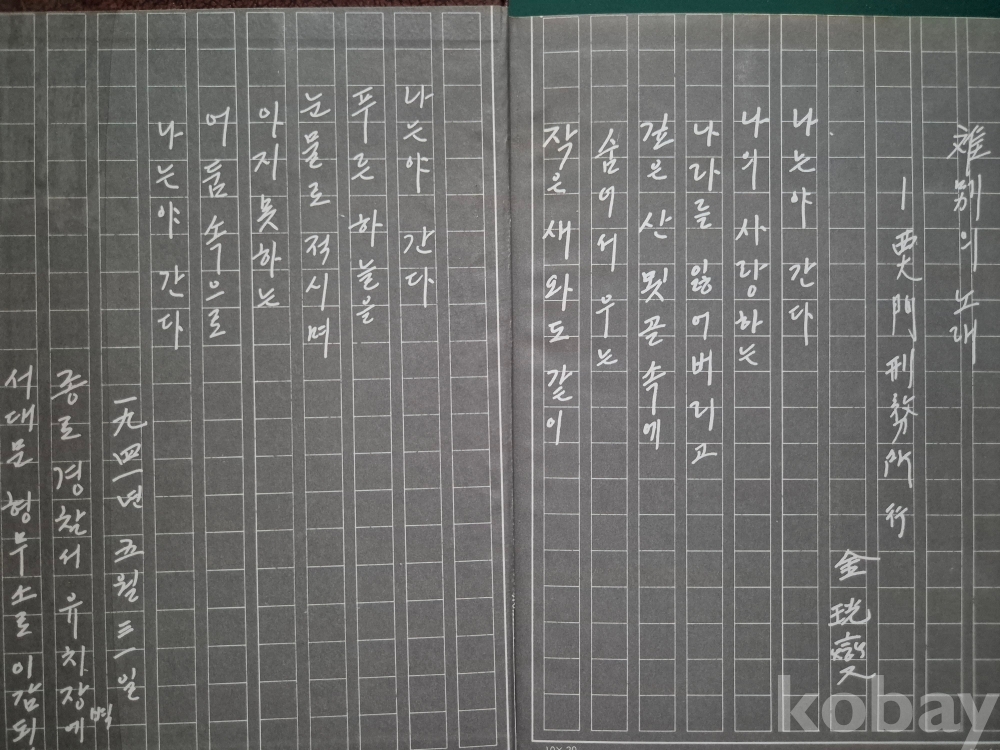 離別의 노래
— 西大門刑務所行
金珖燮
나는야 간다
나의 사랑하는
나라를 잃어버리고
깊은 산 묏곬 속에
숨어서 우는
작은 새와도 같이
나는야 간다
푸른 하늘을
눈물로 적시며
아지 못하는
어둠 속으로
나는야 간다
一九四一년 五월 三一일
종로 경찰서 유치장에
벽
서대문 형무소로 이감되
10×20
kobay